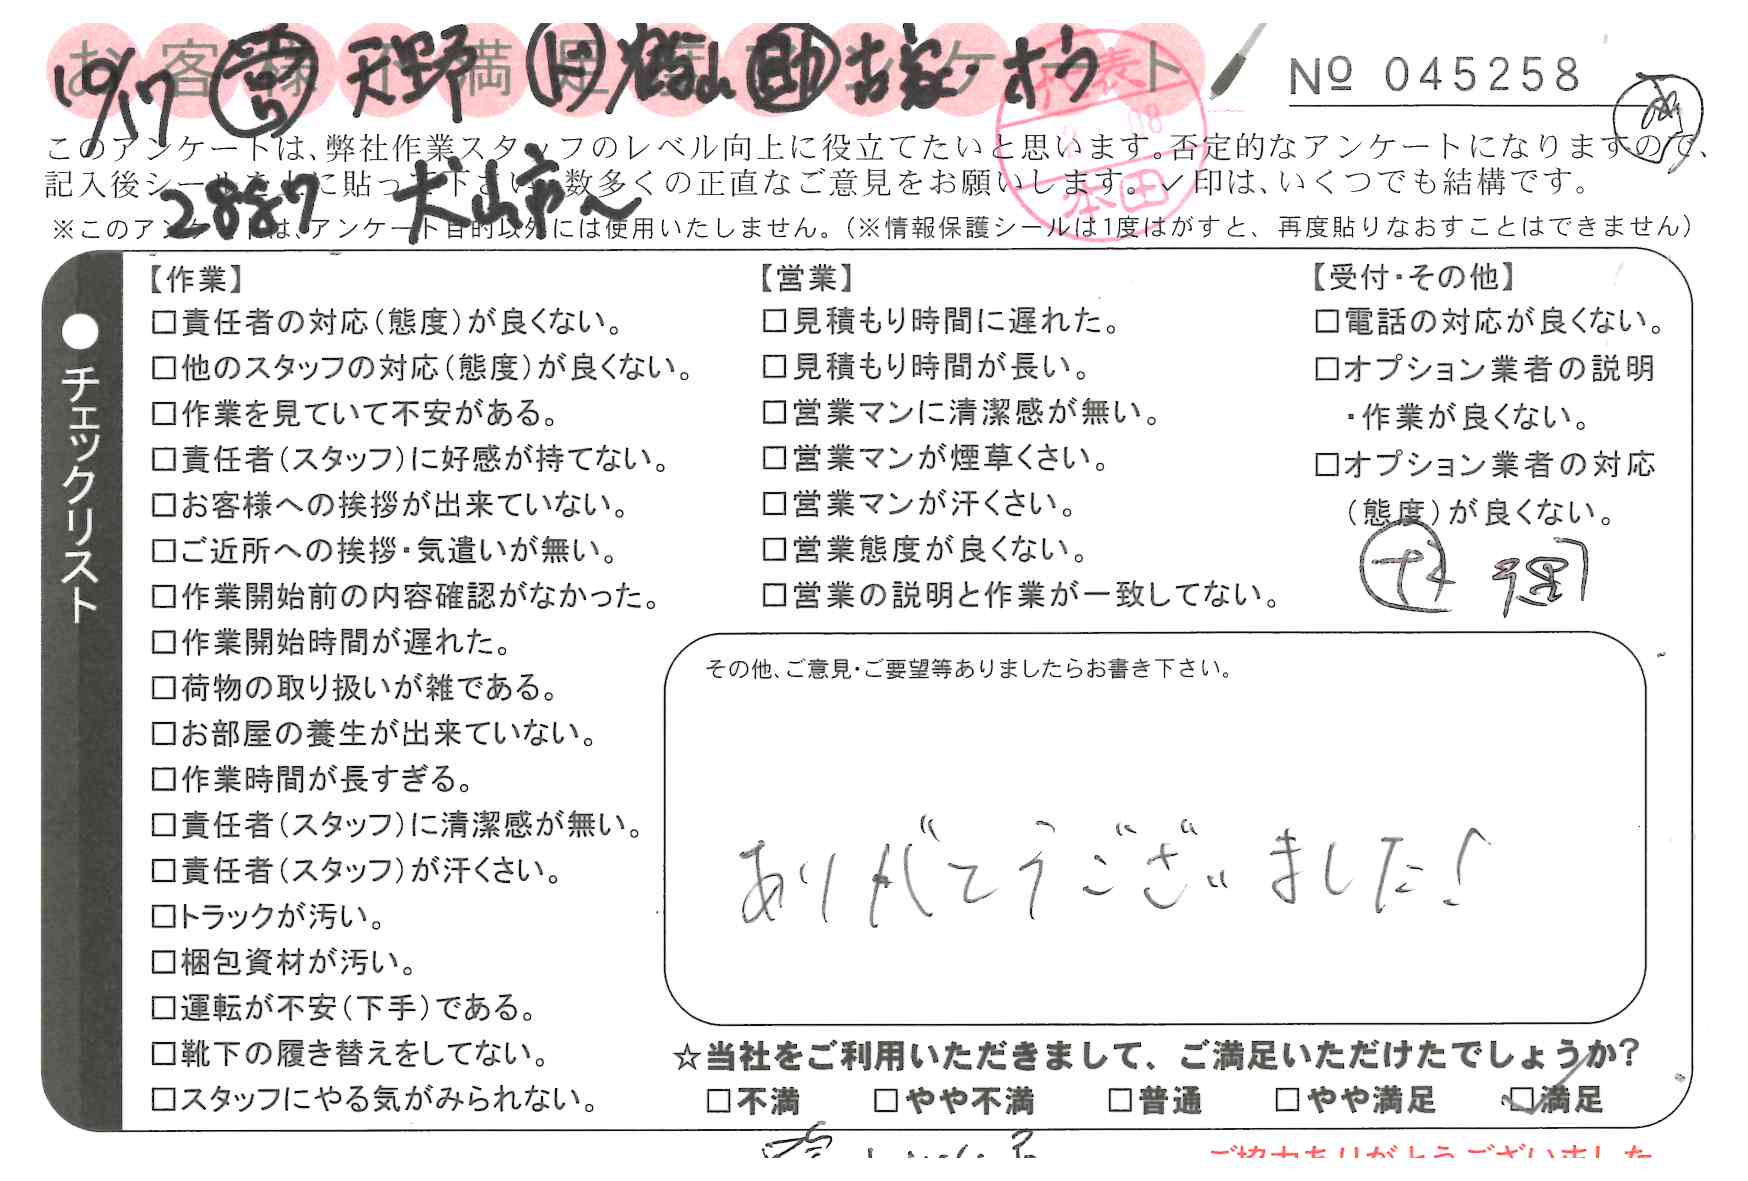 お客様不満足度アンケート
10/17 天野 ド 助 古家 オウ
No 045258
このアンケートは、弊社作業スタッフのレベル向上に役立てたいと思います。否定的なアンケートになりますので、
記入後シールを上に貼って下さい。数多くの正直なご意見をお願いします。✓印は、いくつでも結構です。
2887 犬山市へ
※このアンケートは、アンケート目的以外には使用いたしません。(※情報保護シールは1度はがすと、再度貼りなおすことはできません)
代表
08
本田
●チェックリスト
【作業】
□責任者の対応(態度)が良くない。
□他のスタッフの対応(態度)が良くない。
□作業を見ていて不安がある。
□責任者(スタッフ)に好感が持てない。
□お客様への挨拶が出来ていない。
□ご近所への挨拶・気遣いが無い。
□作業開始前の内容確認がなかった。
□作業開始時間が遅れた。
□荷物の取り扱いが雑である。
□お部屋の養生が出来ていない。
□作業時間が長すぎる。
□責任者(スタッフ)に清潔感が無い。
□責任者(スタッフ)が汗くさい。
□トラックが汚い。
□梱包資材が汚い。
□運転が不安(下手)である。
□靴下の履き替えをしてない。
□スタッフにやる気がみられない。
【営業】
□見積もり時間に遅れた。
□見積もり時間が長い。
□営業マンに清潔感が無い。
□営業マンが煙草くさい。
□営業マンが汗くさい。
□営業態度が良くない。
□営業の説明と作業が一致してない。
【受付・その他】
□電話の対応が良くない。
□オプション業者の説明
・作業が良くない。
□オプション業者の対応
(態度)が良くない。
その他、ご意見・ご要望等ありましたらお書き下さい。
ありがとうございました!
☆当社をご利用いただきまして、ご満足いただけたでしょうか?
□不満 □やや不満 □普通 □やや満足 ☑満足
ご協力ありがとうございました